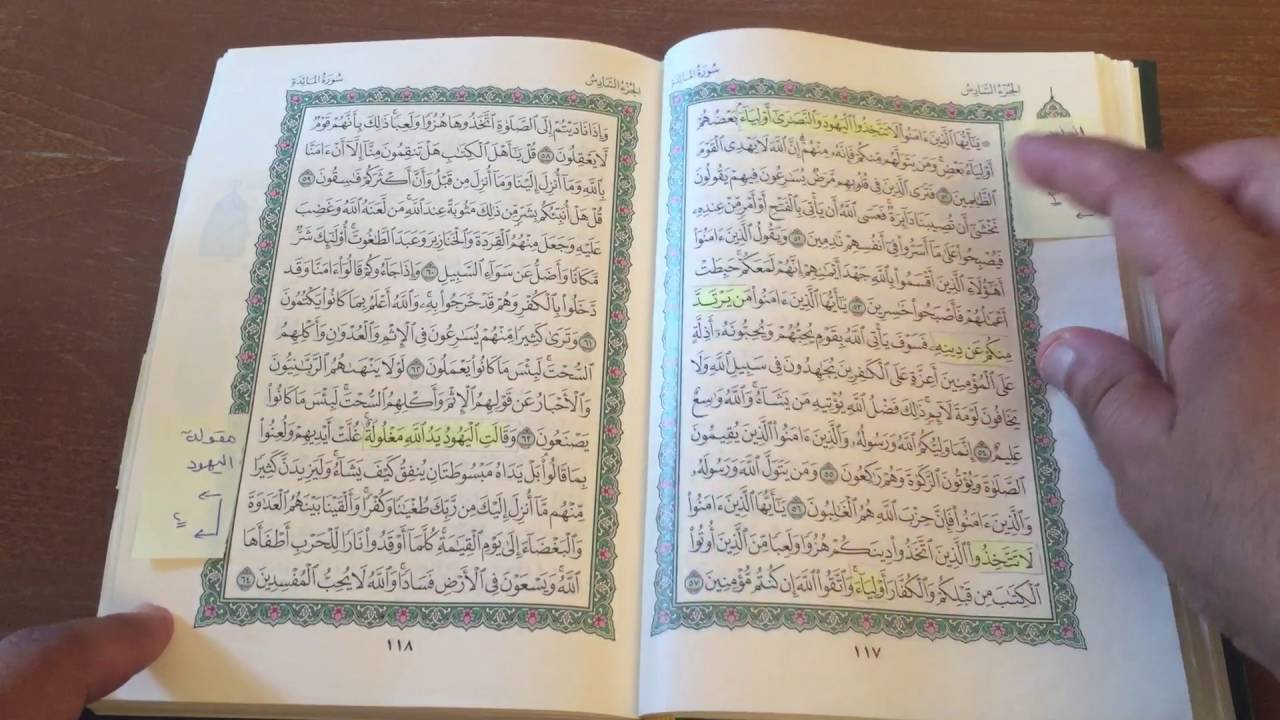 الجزء السادس
سورة المائدة
۞ يَٰٓأَيُّهَا ٱلَّذِينَ ءَامَنُوا۟ لَا تَتَّخِذُوا۟ ٱلْيَهُودَ وَٱلنَّصَٰرَىٰٓ أَوْلِيَآءَ ۘ بَعْضُهُمْ
أَوْلِيَآءُ بَعْضٍ ۚ وَمَن يَتَوَلَّهُم مِّنكُمْ فَإِنَّهُۥ مِنْهُمْ ۗ إِنَّ ٱللَّهَ لَا يَهْدِى ٱلْقَوْمَ
ٱلظَّٰلِمِينَ ٥١ فَتَرَى ٱلَّذِينَ فِى قُلُوبِهِم مَّرَضٌ يُسَٰرِعُونَ فِيهِمْ يَقُولُونَ
نَخْشَىٰٓ أَن تُصِيبَنَا دَآئِرَةٌ ۚ فَعَسَى ٱللَّهُ أَن يَأْتِىَ بِٱلْفَتْحِ أَوْ أَمْرٍ مِّنْ عِندِهِۦ
فَيُصْبِحُوا۟ عَلَىٰ مَآ أَسَرُّوا۟ فِىٓ أَنفُسِهِمْ نَٰدِمِينَ ٥٢ وَيَقُولُ ٱلَّذِينَ ءَامَنُوٓا۟
أَهَٰٓؤُلَآءِ ٱلَّذِينَ أَقْسَمُوا۟ بِٱللَّهِ جَهْدَ أَيْمَٰنِهِمْ ۙ إِنَّهُمْ لَمَعَكُمْ ۚ حَبِطَتْ
أَعْمَٰلُهُمْ فَأَصْبَحُوا۟ خَٰسِرِينَ ٥٣ يَٰٓأَيُّهَا ٱلَّذِينَ ءَامَنُوا۟ مَن يَرْتَدَّ
مِنكُمْ عَن دِينِهِۦ فَسَوْفَ يَأْتِى ٱللَّهُ بِقَوْمٍ يُحِبُّهُمْ وَيُحِبُّونَهُۥٓ أَذِلَّةٍ
عَلَى ٱلْمُؤْمِنِينَ أَعِزَّةٍ عَلَى ٱلْكَٰفِرِينَ يُجَٰهِدُونَ فِى سَبِيلِ ٱللَّهِ وَلَا
يَخَافُونَ لَوْمَةَ لَآئِمٍ ۚ ذَٰلِكَ فَضْلُ ٱللَّهِ يُؤْتِيهِ مَن يَشَآءُ ۚ وَٱللَّهُ وَٰسِعٌ
عَلِيمٌ ٥٤ إِنَّمَا وَلِيُّكُمُ ٱللَّهُ وَرَسُولُهُۥ وَٱلَّذِينَ ءَامَنُوا۟ ٱلَّذِينَ يُقِيمُونَ
ٱلصَّلَوٰةَ وَيُؤْتُونَ ٱلزَّكَوٰةَ وَهُمْ رَٰكِعُونَ ٥٥ وَمَن يَتَوَلَّ ٱللَّهَ وَرَسُولَهُۥ
وَٱلَّذِينَ ءَامَنُوا۟ فَإِنَّ حِزْبَ ٱللَّهِ هُمُ ٱلْغَٰلِبُونَ ٥٦ يَٰٓأَيُّهَا ٱلَّذِينَ ءَامَنُوا۟
لَا تَتَّخِذُوا۟ ٱلَّذِينَ ٱتَّخَذُوا۟ دِينَكُمْ هُزُوًا وَلَعِبًا مِّنَ ٱلَّذِينَ أُوتُوا۟
ٱلْكِتَٰبَ مِن قَبْلِكُمْ وَٱلْكُفَّارَ أَوْلِيَآءَ ۚ وَٱتَّقُوا۟ ٱللَّهَ إِن كُنتُم مُّؤْمِنِينَ ٥٧
١١٧
الجزء السادس
سورة المائدة
وَإِذَا نَادَيْتُمْ إِلَى ٱلصَّلَوٰةِ ٱتَّخَذُوهَا هُزُوًا وَلَعِبًا ۚ ذَٰلِكَ بِأَنَّهُمْ قَوْمٌ
لَّا يَعْقِلُونَ ٥٨ قُلْ يَٰٓأَهْلَ ٱلْكِتَٰبِ هَلْ تَنقِمُونَ مِنَّآ إِلَّآ أَنْ ءَامَنَّا
بِٱللَّهِ وَمَآ أُنزِلَ إِلَيْنَا وَمَآ أُنزِلَ مِن قَبْلُ وَأَنَّ أَكْثَرَكُمْ فَٰسِقُونَ ٥٩
قُلْ هَلْ أُنَبِّئُكُم بِشَرٍّ مِّن ذَٰلِكَ مَثُوبَةً عِندَ ٱللَّهِ ۚ مَن لَّعَنَهُ ٱللَّهُ وَغَضِبَ
عَلَيْهِ وَجَعَلَ مِنْهُمُ ٱلْقِرَدَةَ وَٱلْخَنَازِيرَ وَعَبَدَ ٱلطَّٰغُوتَ ۚ أُو۟لَٰٓئِكَ شَرٌّ
مَّكَانًا وَأَضَلُّ عَن سَوَآءِ ٱلسَّبِيلِ ٦٠ وَإِذَا جَآءُوكُمْ قَالُوٓا۟ ءَامَنَّا وَقَد
دَّخَلُوا۟ بِٱلْكُفْرِ وَهُمْ قَدْ خَرَجُوا۟ بِهِۦ ۚ وَٱللَّهُ أَعْلَمُ بِمَا كَانُوا۟ يَكْتُمُونَ
٦١ وَتَرَىٰ كَثِيرًا مِّنْهُمْ يُسَٰرِعُونَ فِى ٱلْإِثْمِ وَٱلْعُدْوَٰنِ وَأَكْلِهِمُ
ٱلسُّحْتَ ۚ لَبِئْسَ مَا كَانُوا۟ يَعْمَلُونَ ٦٢ لَوْلَا يَنْهَىٰهُمُ ٱلرَّبَّٰنِيُّونَ
وَٱلْأَحْبَارُ عَن قَوْلِهِمُ ٱلْإِثْمَ وَأَكْلِهِمُ ٱلسُّحْتَ ۚ لَبِئْسَ مَا كَانُوا۟
يَصْنَعُونَ ٦٣ وَقَالَتِ ٱلْيَهُودُ يَدُ ٱللَّهِ مَغْلُولَةٌ ۚ غُلَّتْ أَيْدِيهِمْ وَلُعِنُوا۟
بِمَا قَالُوا۟ ۘ بَلْ يَدَاهُ مَبْسُوطَتَانِ يُنفِقُ كَيْفَ يَشَآءُ ۚ وَلَيَزِيدَنَّ كَثِيرًا
مِّنْهُم مَّآ أُنزِلَ إِلَيْكَ مِن رَّبِّكَ طُغْيَٰنًا وَكُفْرًا ۚ وَأَلْقَيْنَا بَيْنَهُمُ ٱلْعَدَٰوَةَ
وَٱلْبَغْضَآءَ إِلَىٰ يَوْمِ ٱلْقِيَٰمَةِ ۚ كُلَّمَآ أَوْقَدُوا۟ نَارًا لِّلْحَرْبِ أَطْفَأَهَا
ٱللَّهُ ۚ وَيَسْعَوْنَ فِى ٱلْأَرْضِ فَسَادًا ۚ وَٱللَّهُ لَا يُحِبُّ ٱلْمُفْسِدِينَ ٦٤
١١٨
مقولة
اليهود